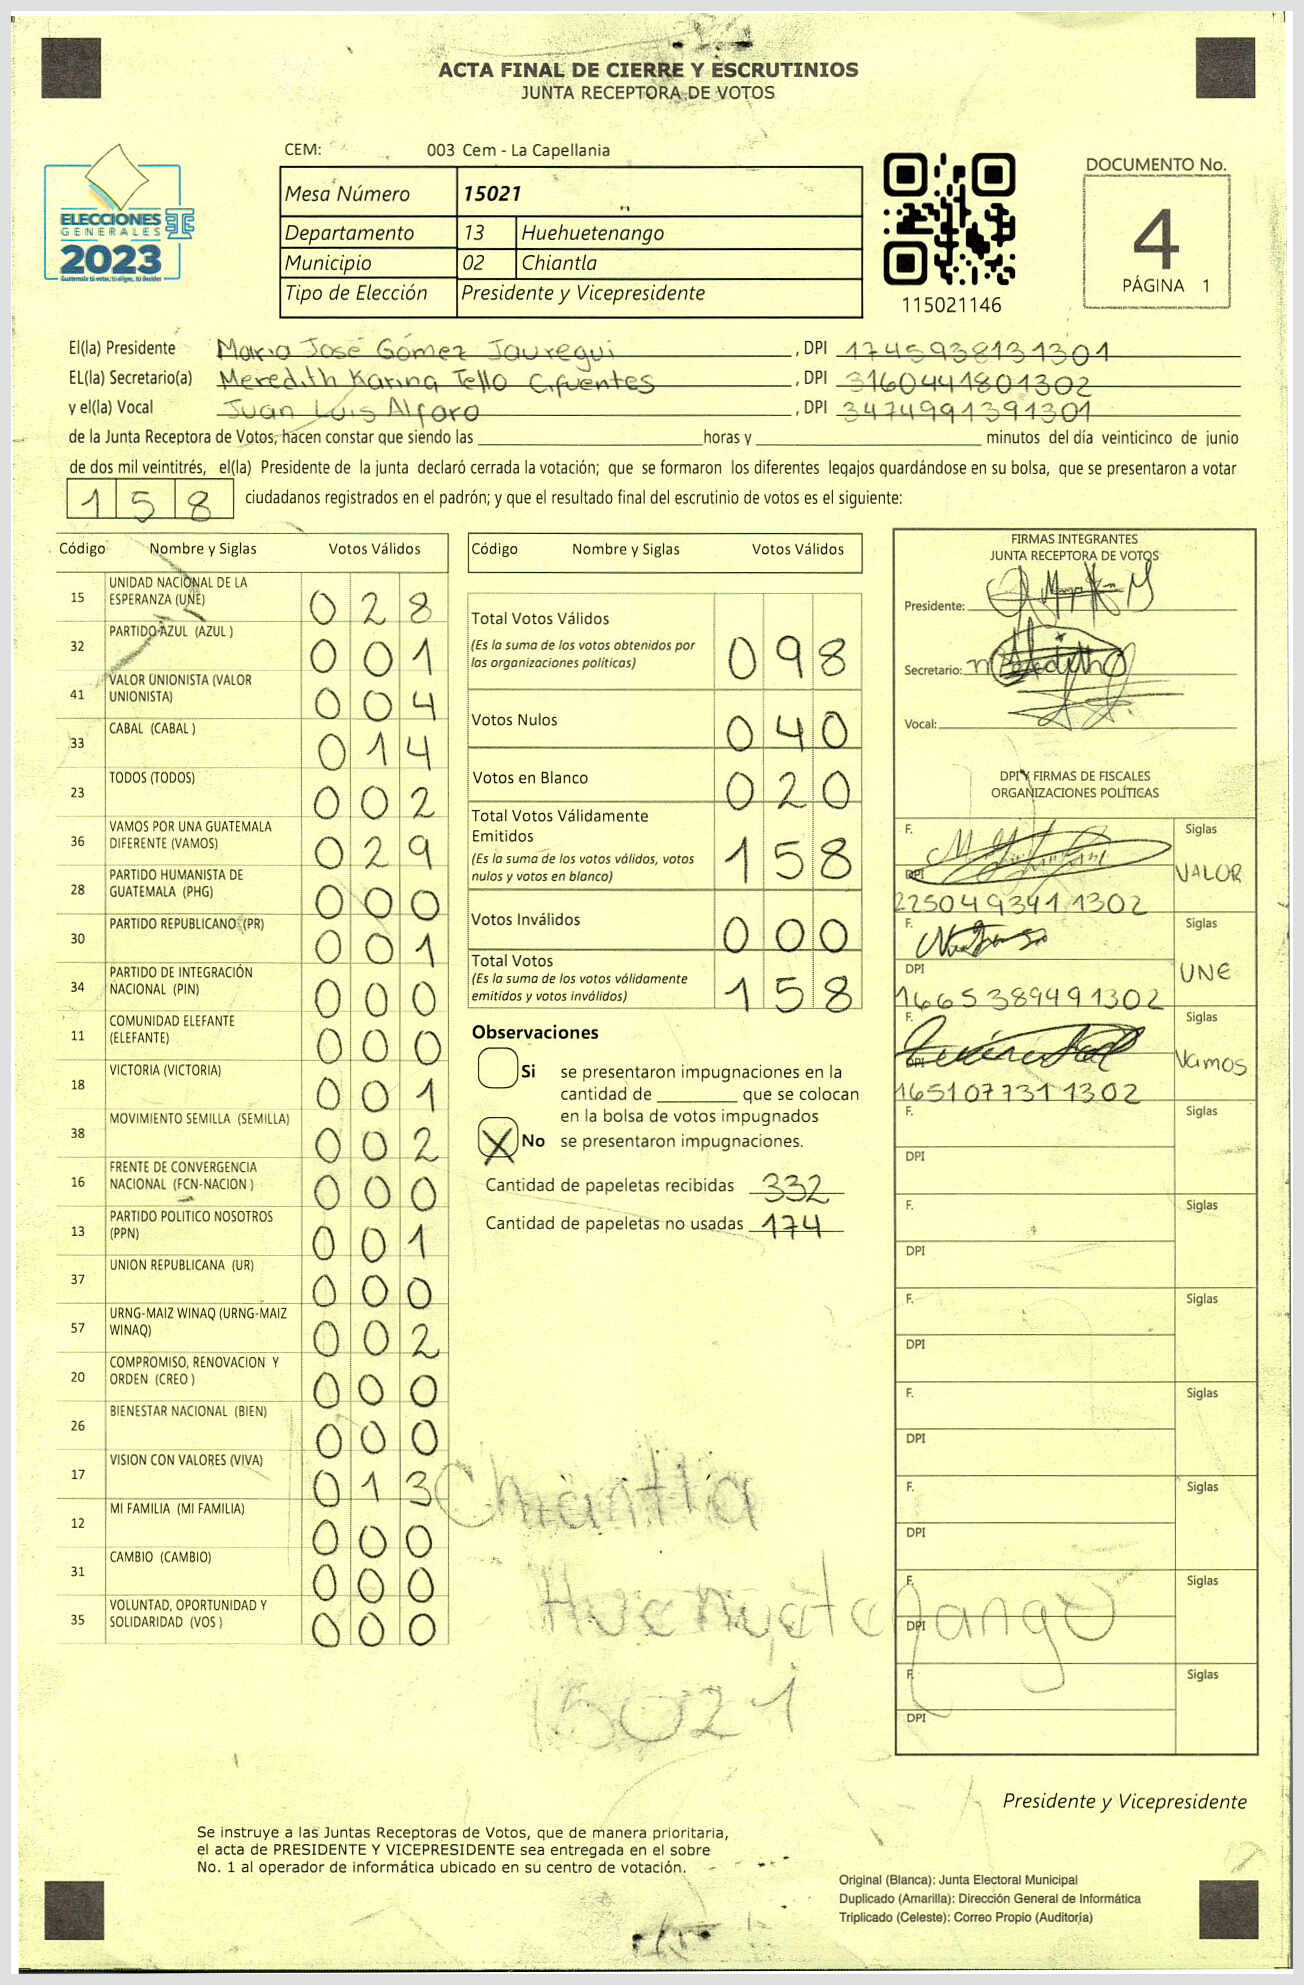 ACTA FINAL DE CIERRE Y ESCRUTINIOS
JUNTA RECEPTORA DE VOTOS
CEM: 003 Cem - La Capellania
Mesa Número 15021
Departamento 13 Huehuetenango
Municipio 02 Chiantla
Tipo de Elección Presidente y Vicepresidente
ELECCIONES
GENERALES
2023
115021146
DOCUMENTO No.
4
PÁGINA 1
El(la) Presidente Maria José Gómez Jauregui, DPI 1745938131301
EL(la) Secretario(a) Meredith Karina Tello Cifuentes, DPI 3160441801302
y el(la) Vocal Juan Luis Alfaro, DPI 3474991391301
de la Junta Receptora de Votos, hacen constar que siendo las ____ horas y ____ minutos del día veinticinco de junio
de dos mil veintitrés, el(la) Presidente de la junta declaró cerrada la votación; que se formaron los diferentes legajos guardándose en su bolsa, que se presentaron a votar
158 ciudadanos registrados en el padrón; y que el resultado final del escrutinio de votos es el siguiente:
Código Nombre y Siglas Votos Válidos
15 UNIDAD NACIONAL DE LA
ESPERANZA (UNE) 028
32 PARTIDO AZUL (AZUL ) 001
41 VALOR UNIONISTA (VALOR
UNIONISTA) 004
33 CABAL (CABAL ) 014
23 TODOS (TODOS) 002
36 VAMOS POR UNA GUATEMALA
DIFERENTE (VAMOS) 029
28 PARTIDO HUMANISTA DE
GUATEMALA (PHG) 000
30 PARTIDO REPUBLICANO (PR) 001
34 PARTIDO DE INTEGRACIÓN
NACIONAL (PIN) 000
11 COMUNIDAD ELEFANTE
(ELEFANTE) 000
18 VICTORIA (VICTORIA) 001
38 MOVIMIENTO SEMILLA (SEMILLA) 002
16 FRENTE DE CONVERGENCIA
NACIONAL (FCN-NACION ) 000
13 PARTIDO POLITICO NOSOTROS
(PPN) 001
37 UNION REPUBLICANA (UR) 000
57 URNG-MAIZ WINAQ (URNG-MAIZ
WINAQ) 002
20 COMPROMISO, RENOVACION Y
ORDEN (CREO ) 000
26 BIENESTAR NACIONAL (BIEN) 000
17 VISION CON VALORES (VIVA) 013
12 MI FAMILIA (MI FAMILIA) 000
31 CAMBIO (CAMBIO) 000
35 VOLUNTAD, OPORTUNIDAD Y
SOLIDARIDAD (VOS ) 000
Código Nombre y Siglas Votos Válidos
Total Votos Válidos
(Es la suma de los votos obtenidos por
las organizaciones políticas) 098
Votos Nulos 040
Votos en Blanco 020
Total Votos Válidamente
Emitidos
(Es la suma de los votos válidos, votos
nulos y votos en blanco) 158
Votos Inválidos 000
Total Votos
(Es la suma de los votos válidamente
emitidos y votos inválidos) 158
Observaciones
Si se presentaron impugnaciones en la
cantidad de ____ que se colocan
en la bolsa de votos impugnados
X No se presentaron impugnaciones.
Cantidad de papeletas recibidas 332
Cantidad de papeletas no usadas 174
Chiantla
Huehuetenango
15021
FIRMAS INTEGRANTES
JUNTA RECEPTORA DE VOTOS
Presidente:
Secretario: Meredith
Vocal:
DPI Y FIRMAS DE FISCALES
ORGANIZACIONES POLÍTICAS
F. Siglas
DPI VALOR
2250493911302
F. Siglas
DPI UNE
1665389491302
F. Siglas
DPI Vamos
1651077311302
F. Siglas
DPI
F. Siglas
DPI
F. Siglas
DPI
F. Siglas
DPI
F. Siglas
DPI
F. Siglas
DPI
F. Siglas
DPI
Presidente y Vicepresidente
Se instruye a las Juntas Receptoras de Votos, que de manera prioritaria,
el acta de PRESIDENTE Y VICEPRESIDENTE sea entregada en el sobre
No. 1 al operador de informática ubicado en su centro de votación.
Original (Blanca): Junta Electoral Municipal
Duplicado (Amarilla): Dirección General de Informática
Triplicado (Celeste): Correo Propio (Auditoría)